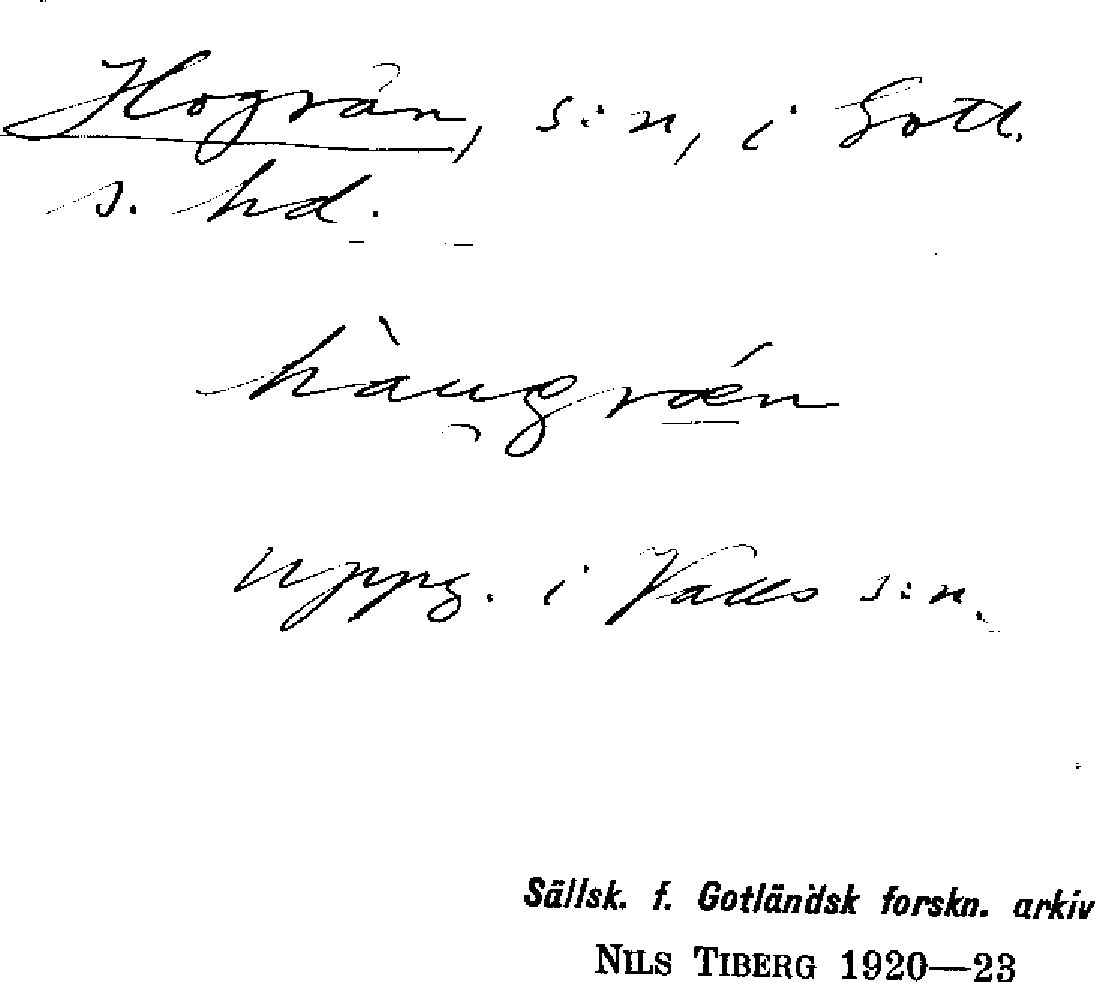 Hogrän, s:n, i Gotl.
s. hd.
hàu̯grǽn
Uppg. i Valls s:n.
Sällsk. f. Gotländsk forskn. arkiv
NILS TIBERG 1920—23